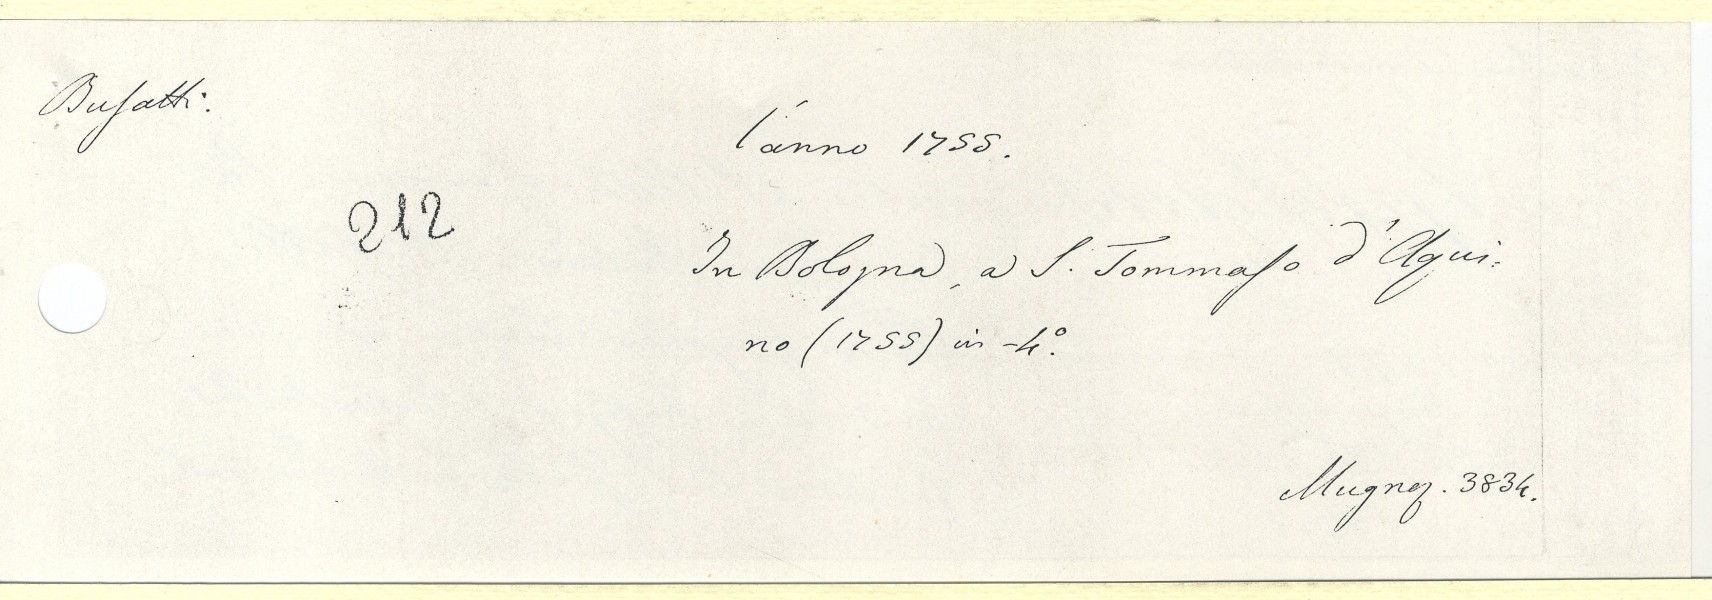 Busatti.
l'anno 1755.
212
In Bologna, a S. Tommaso d'Aqui:
no (1755) in-4º.
Mugnoz. 3834.